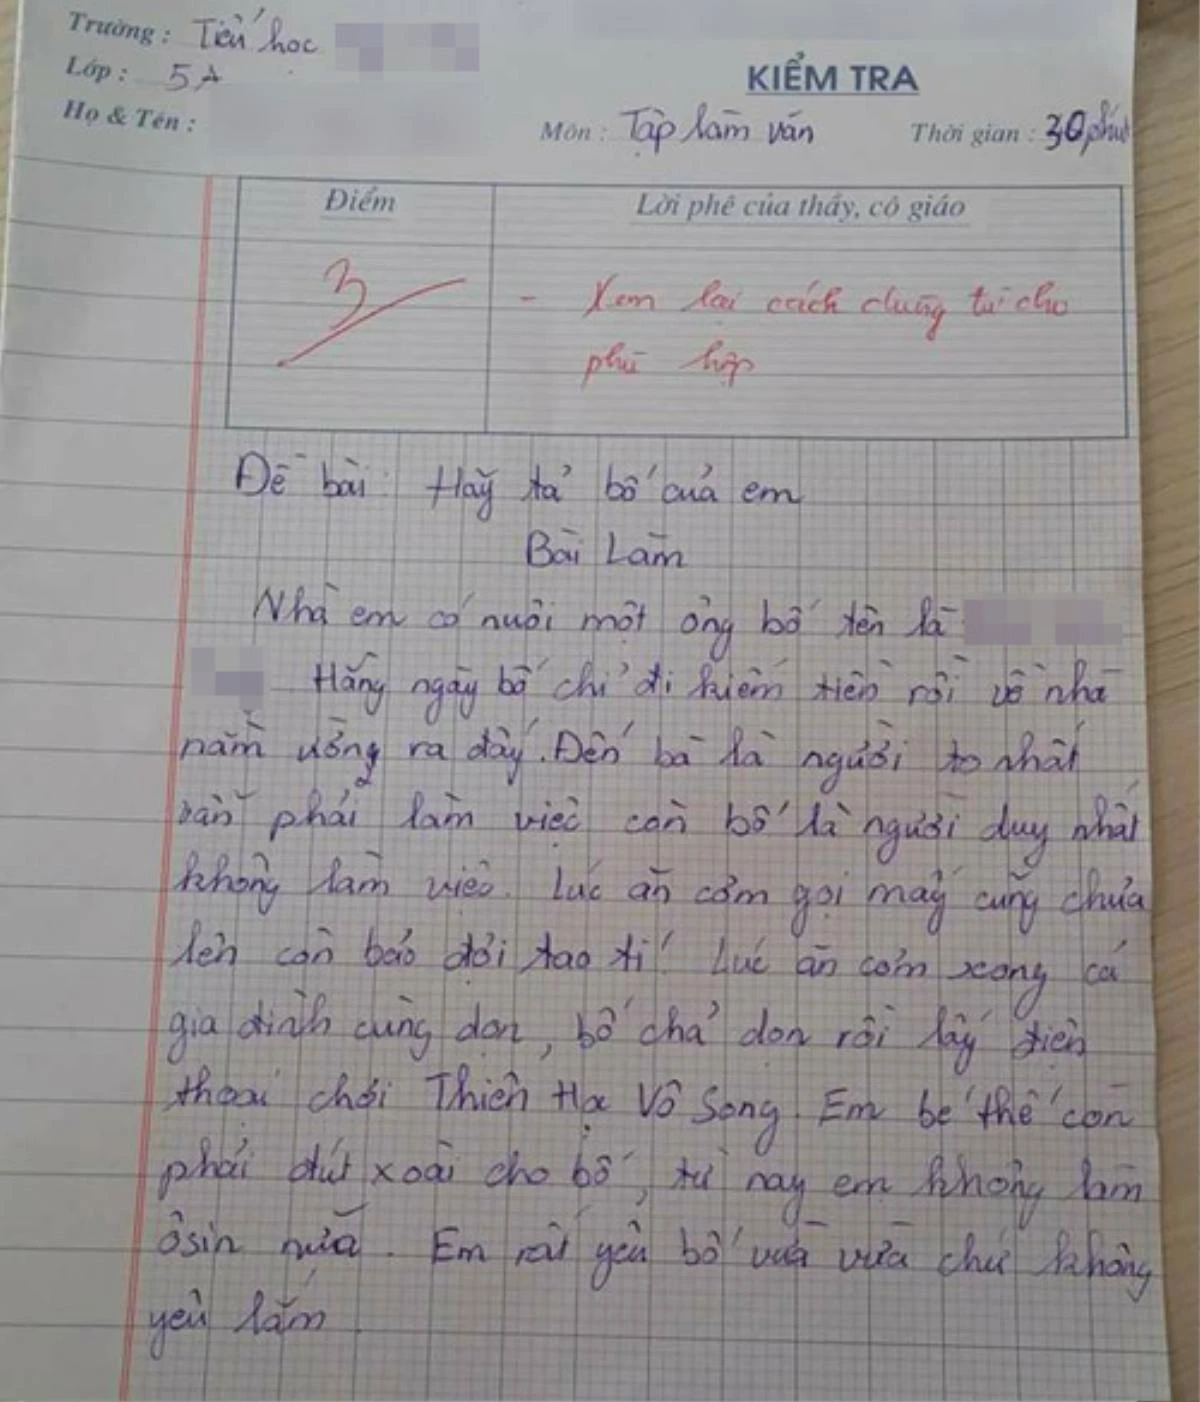 Trường : Tiểu học
Lớp : 5A
Họ & Tên :
KIỂM TRA
Môn : Tập làm văn Thời gian : 30 phút
Điểm Lời phê của thầy, cô giáo
3 - Xem lại cách dùng từ cho
phù hợp
Đề bài : Hãy tả bố của em
Bài Làm
Nhà em có nuôi một ông bố tên là
Hằng ngày bố chỉ đi kiếm tiền rồi về nhà
nằm ưỡng ra đấy. Đến bà là người to nhất
vẫn phải làm việc còn bố là người duy nhất
không làm việc. Lúc ăn cơm gọi mãy cũng chưa
lên còn bảo đợi tao tí! Lúc ăn cơm xong cả
gia đình cùng dọn, bố chả dọn rồi lấy điện
thoại chơi Thiên Hạ Vô Song. Em bé thế còn
phải đút xoài cho bố, từ nay em không làm
ôsin nữa. Em rất yêu bố vừa vừa chứ không
yêu lắm